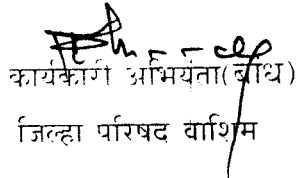 कार्यकारी अभियंता(बांध)
जिल्हा परिषद वाशिम